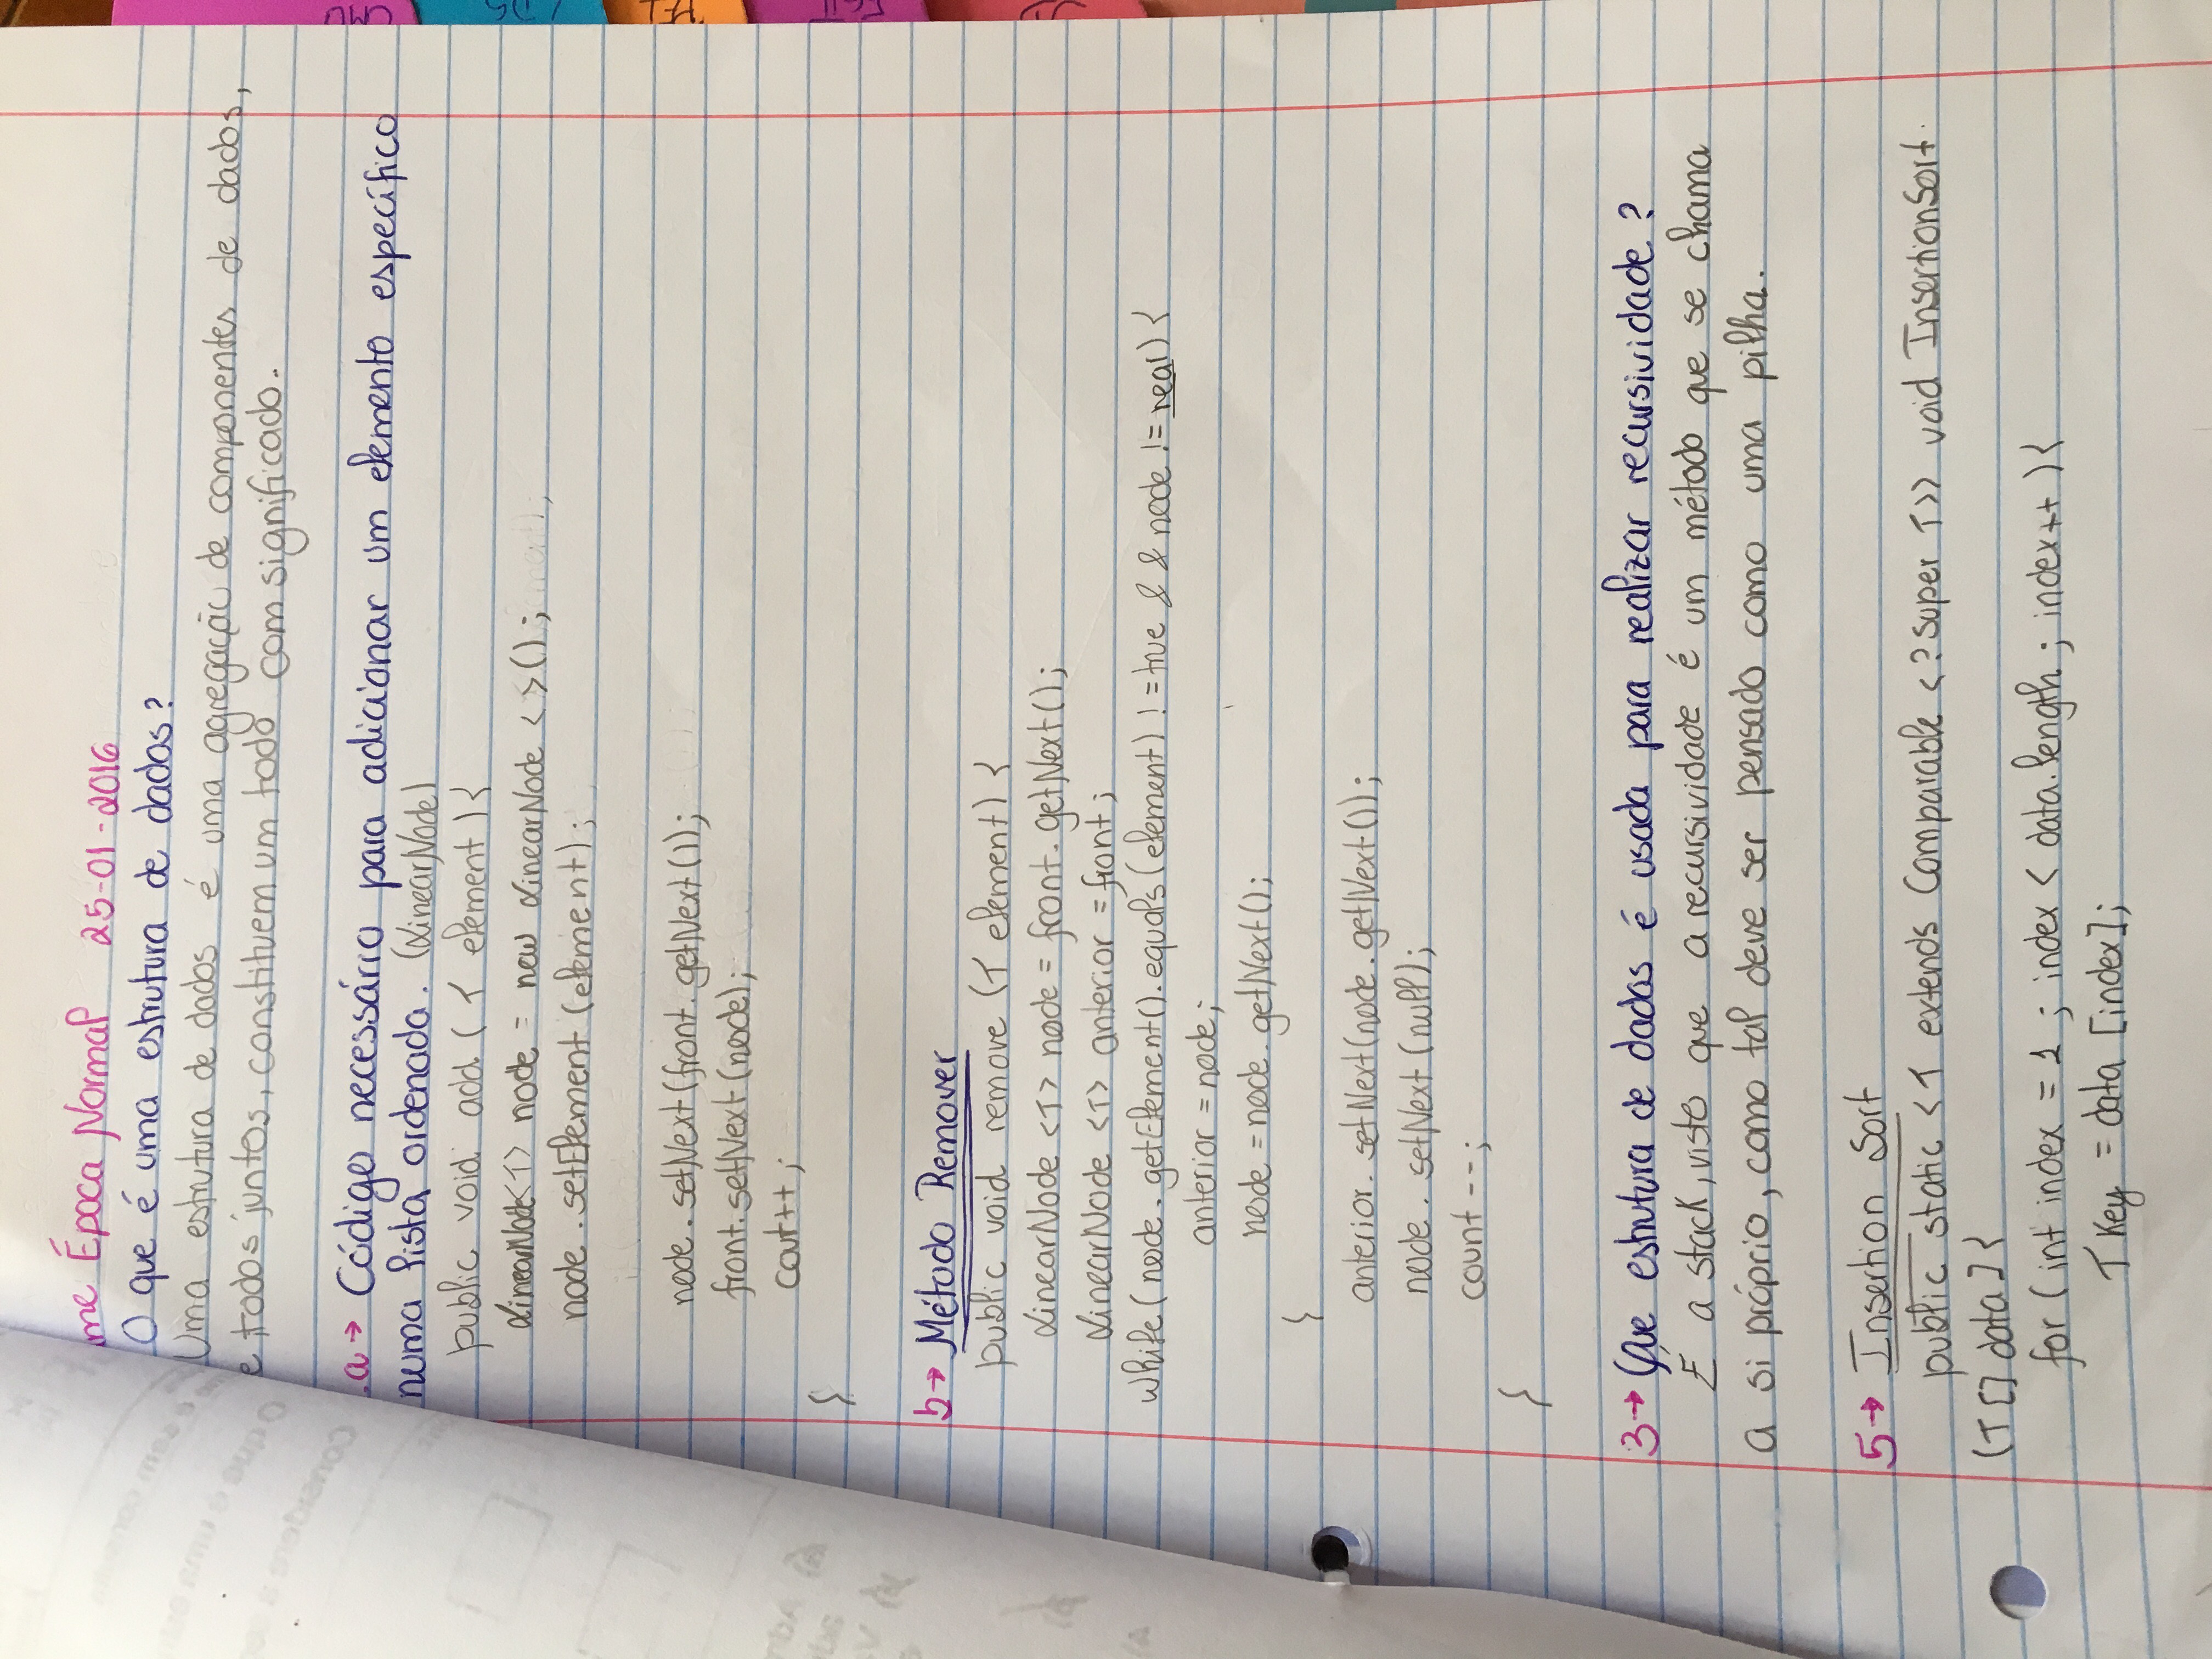 me Época Normal 25-01-2016
O que é uma estrutura de dados?
Uma estrutura de dados é uma agregação de componentes de dados,
e, todos juntos, constituem um todo com significado.
.a → Código necessário para adicionar um elemento específico
numa lista ordenada. (LinearNode)
public void add ( T element ) {
LinearNode<T> node = new LinearNode < >();
node . setElement (element);
node . setNext (front. getNext ());
front. setNext (node);
cout++ ;
}
b → Método Remover
public void remove (T element) {
LinearNode <T> node = front. getNext ();
LinearNode <T> anterior = front ;
while ( node . getElement().equals (element) != true && node != rear) {
anterior = node;
node = node. getNext ();
}
anterior. setNext (node. getNext ());
node . setNext (null);
count --;
}
3 → Que estrutura de dados é usada para realizar recursividade ?
É a stack, visto que a recursividade é um método que se chama
a si próprio, como tal deve ser pensado como uma pilha.
5 → Insertion Sort
public static < T extends Comparable < ? super T >> void InsertionSort
(T [] data ] {
for ( int index = 1 ; index < data.length ; index++ ) {
T Key = data [index];